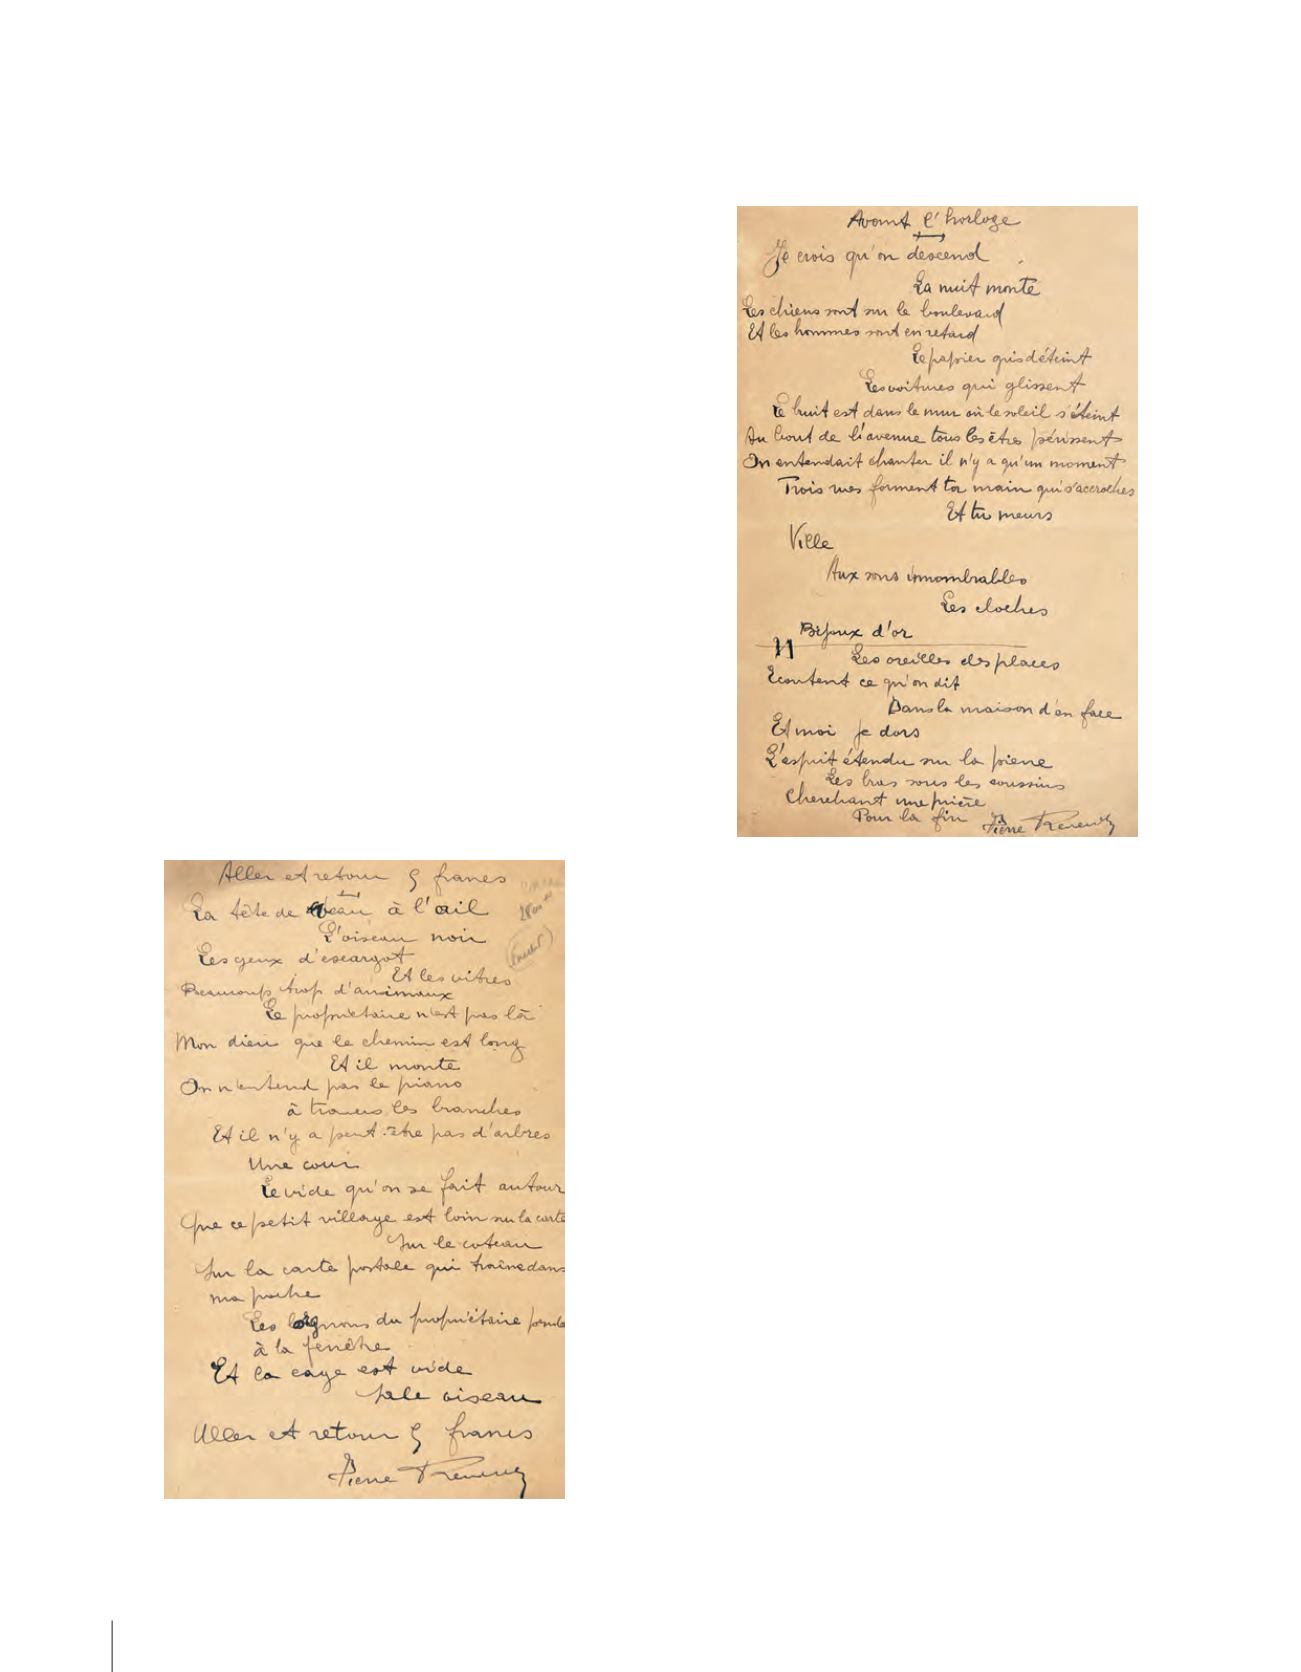 Avant l'horloge
Je crois qu'on descend
La nuit monte
Les chiens sont sur le boulevard
Et les hommes sont en retard
Le papier qui déteint
Les voitures qui glissent
Le bruit est dans le mur où le soleil s'éteint
Au bout de l'avenue tous les êtres périssent
On entendait chanter il n'y a qu'un moment
Trois rues forment ta main qui s'accroches
Et tu meurs
Ville
Aux sons innombrables
Les cloches
Bijoux d'or
Les oreilles des places
Ecoutent ce qu'on dit
Dans la maison d'en face
Et moi je dors
L'esprit étendu sur la pierre
Les bras sous les coussins
Cherchant une prière
Pour la fin Pierre Reverdy
Aller et retour 5 francs
La tête de veau à l'ail
L'oiseau noir
Les yeux d'escargot
Et les vitres
Beaucoup trop d'animaux
Le propriétaire n'est pas là
Mon dieu que le chemin est long
Et il monte
On n'entend pas le piano
à travers les branches
Et il n'y a peut-être pas d'arbres
Une cour
Le vide qu'on se fait autour
Que ce petit village est loin sur la carte
Sur le coteau
Sur la carte postale qui traîne dans
ma poche
Les du propriétaire
à la fenêtre
Et la cage est vide
sale oiseau
Aller et retour 5 francs
Pierre Reverdy